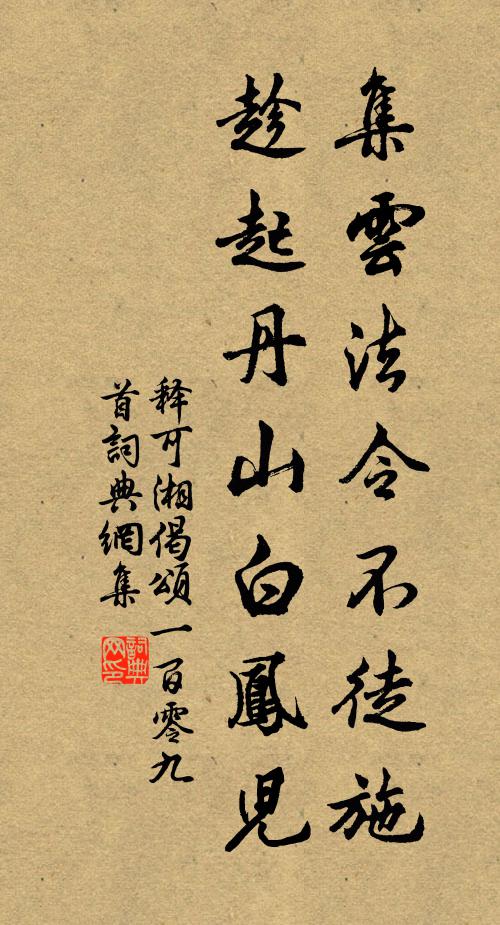 集雲法令不徒施
趁起丹山白鳳児
释可湘偈頌一百零九
首詞典網集
詞典网印